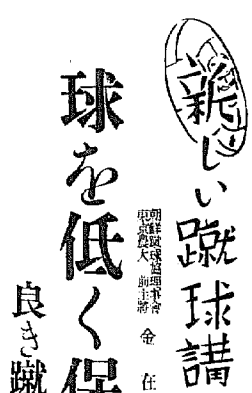 新しい蹴球講
朝鮮蹴球協理事會
東京農大前主將
金在
球を低く保
良き蹴